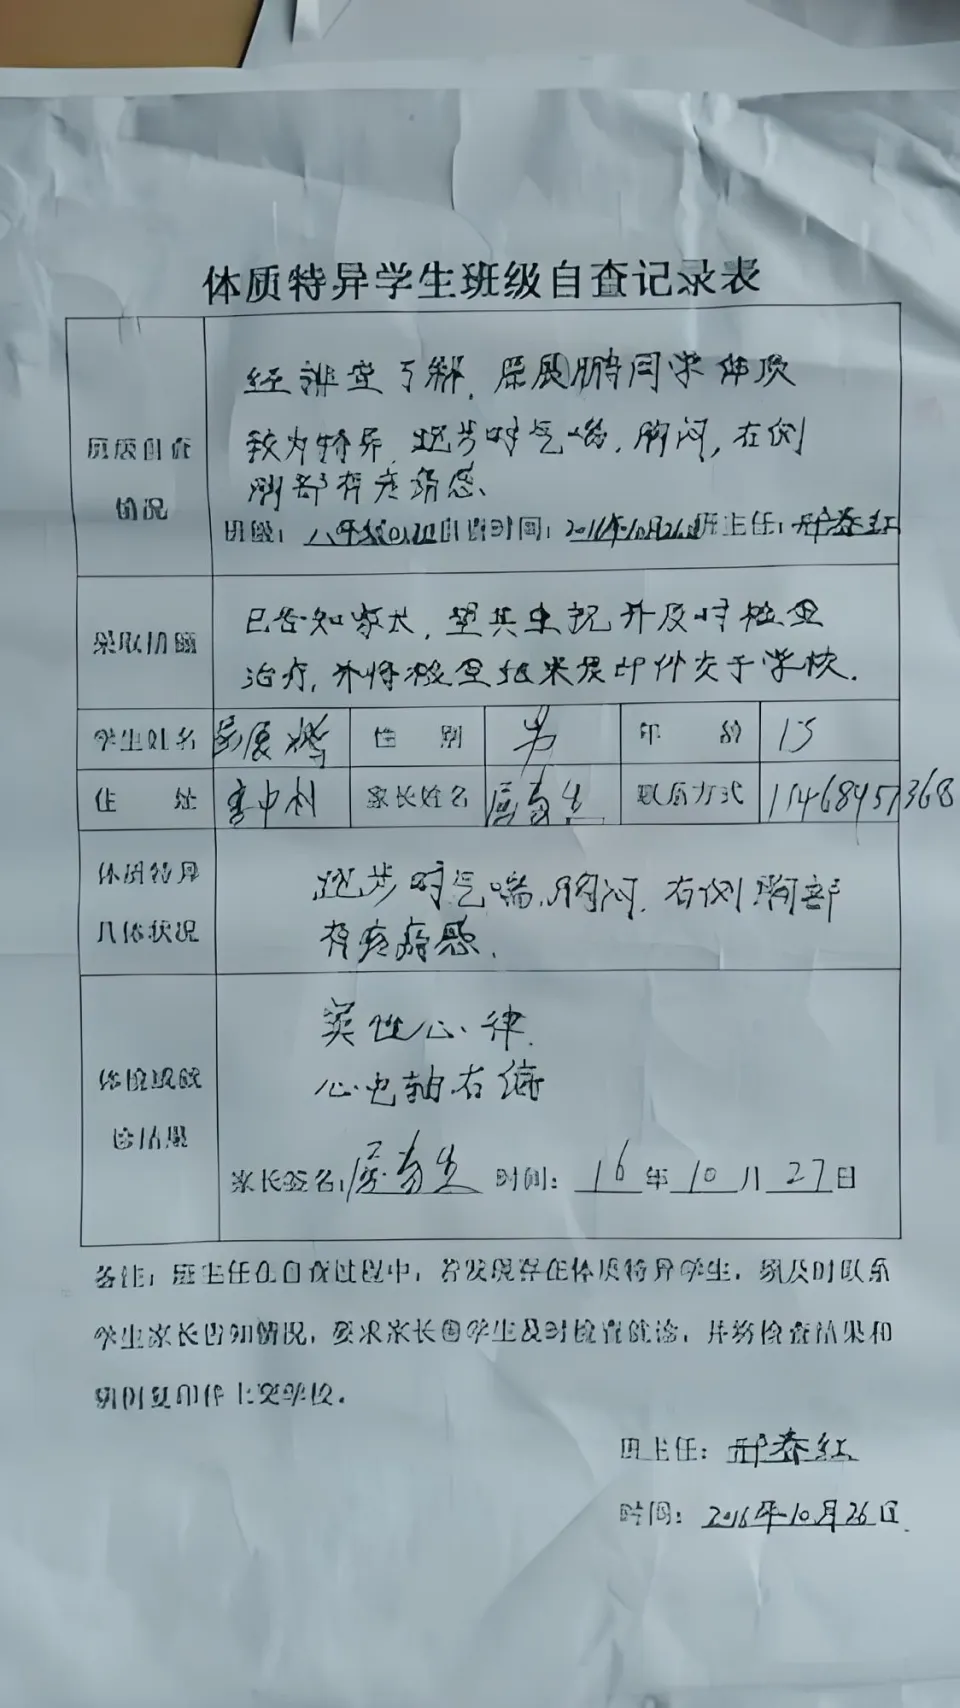 体质特异学生班级自查记录表
经排查了解,屈展鹏同学体质
较为特异,跑步时气喘,胸闷,右侧
胸部有疼痛感、
情况
班级: 八年级 自查时间: 2016年10月26日 班主任: 邢春红
已告知家长,望其重视并及时检查
治疗,并将检查结果复印件交于学校.
采取措施
学生姓名 屈展鹏 性 别 男 年 龄 15
住 址 中村 家长姓名 联系方式
体质特异 跑步时气喘、胸闷,右侧胸部
具体状况 有疼痛感.
窦性心律.
心电轴右偏
诊结果
家长签名: 时间: 16年10月27日
备注:班主任在自查过程中,若发现存在体质特异学生,须及时联系
学生家长告知情况,要求家长带学生及时检查就诊,并将检查结果和
病例复印件上交学校.
班主任: 邢春红
时间: 2016年10月26日.